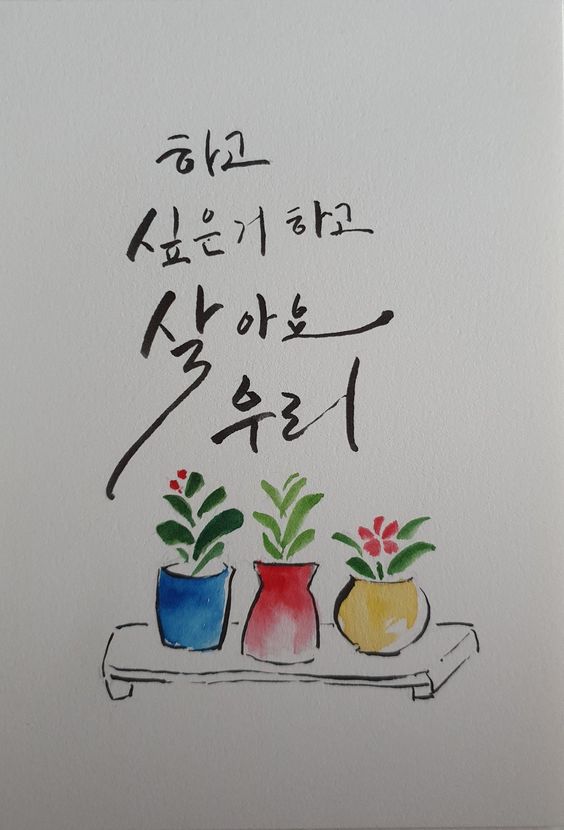 하고
싶은거 하고
살아요
우리